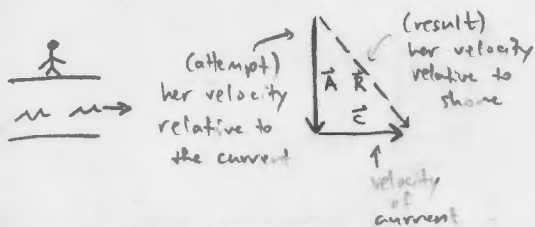 (attempt)
her velocity
relative to
the current
A
R
C
(result)
her velocity
relative to
shore
velocity
of
current